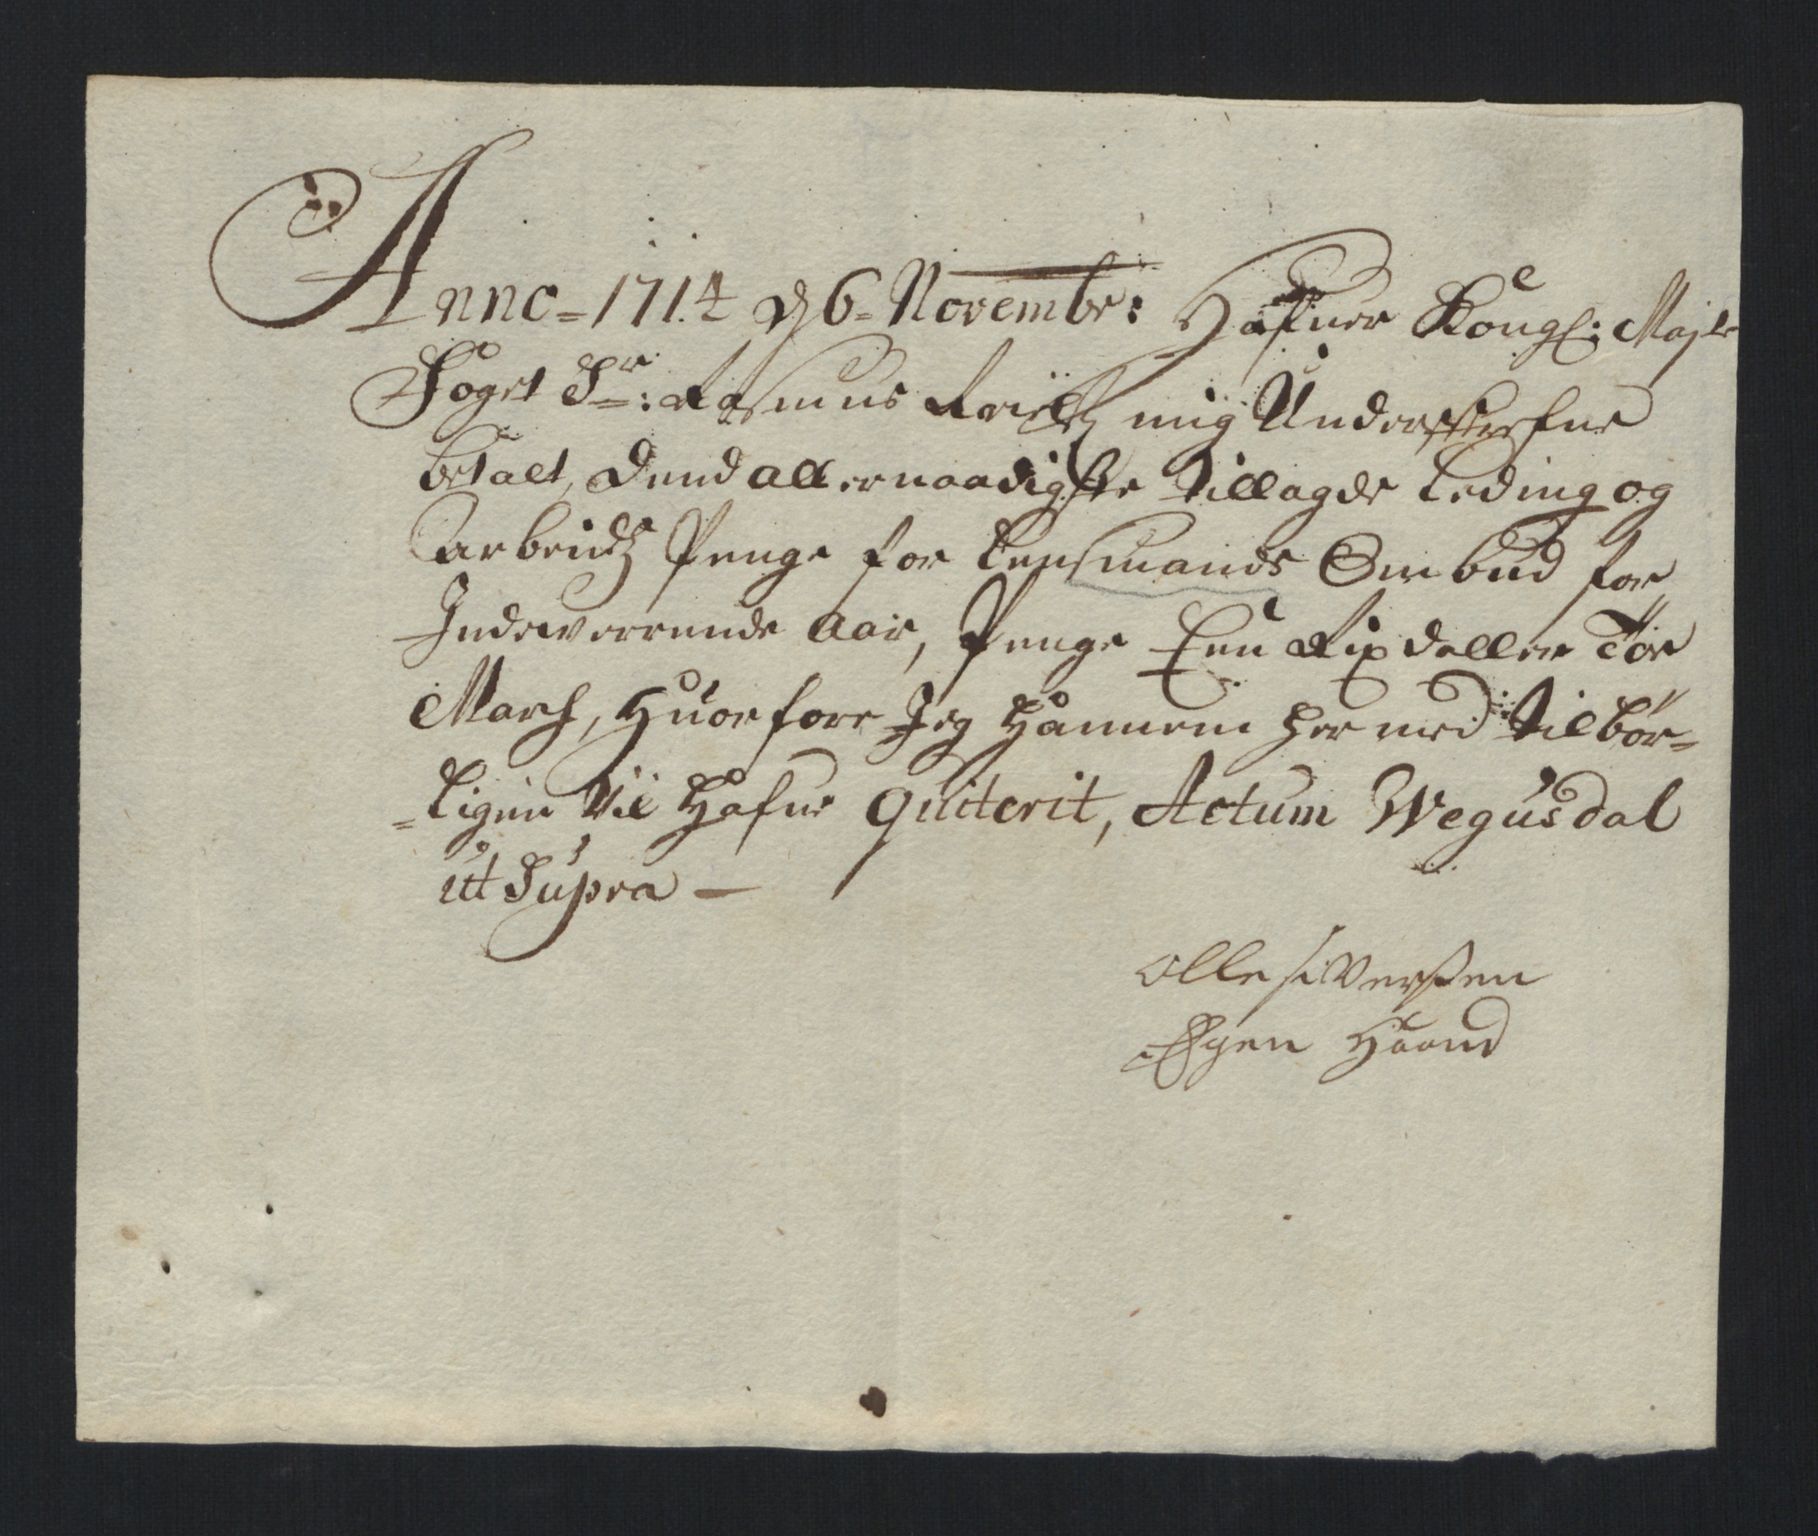 Anno = 1714 d 6 = Novembr: Hafuer Kongl: Mayts
Foget Sr: Rasmus mig Underskrefne
betalt, dend allernaadigste tillagde Leding og
arbeidtz Penge for Lensmands Ombud for
Indeverrende Aar, Penge Een Rix daller Tör
March, Huorfore Jeg Hannem her med tilbör=
=ligen Vil Hafue quiterit, Actum Wegusdal
ut Supra —
olle siversen
Egen Haand